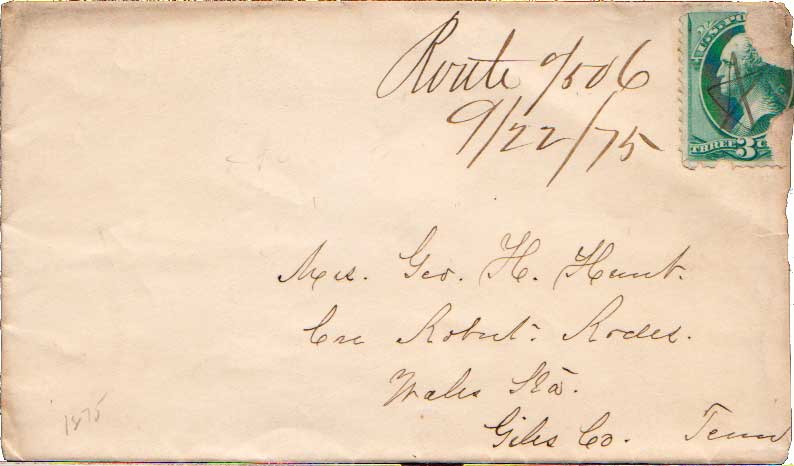 Route 7506
9/22/75
U.S. PO
THREE 3 C
Mrs. Geo. H. Hunt.
Cre Robert. Rodes.
Wales Sta.
Giles Co. Tenn
1875